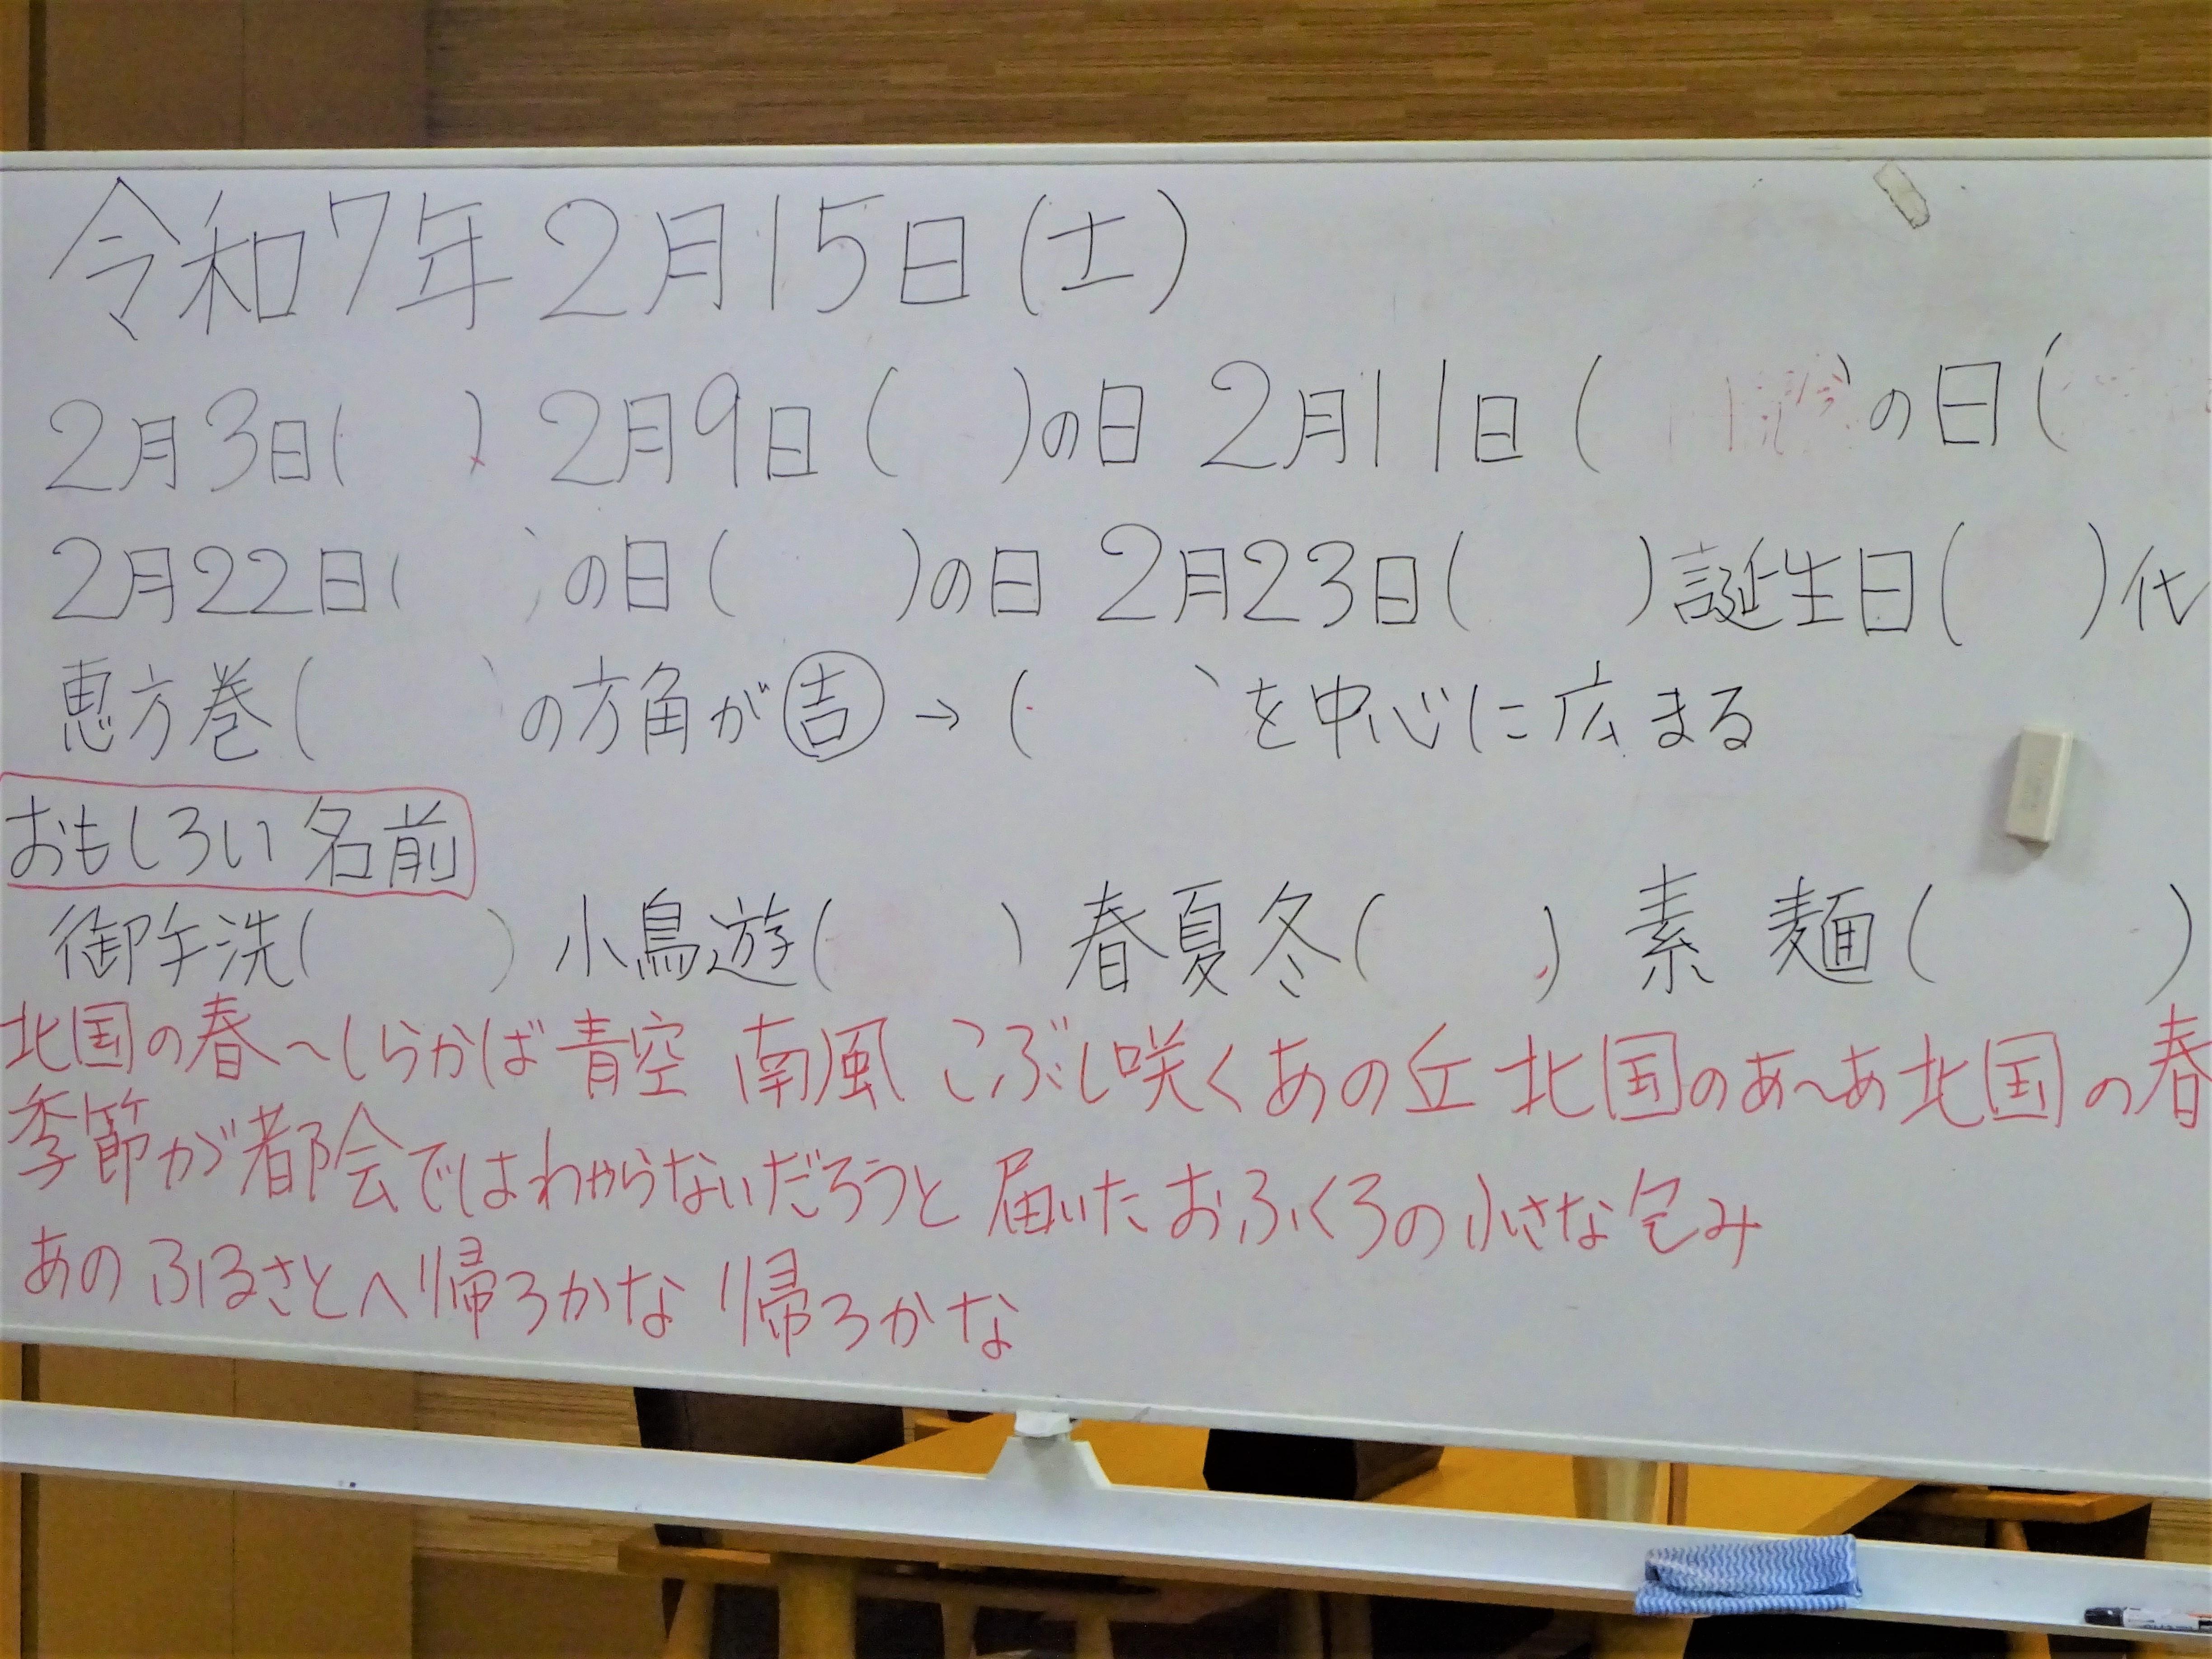 令和7年2月15日(土)
2月3日(　)2月9日(　)の日 2月11日(　)の日(
2月22日(　)の日(　)の日 2月23日(　)誕生日(　)代
恵方巻(　)の方角が吉→(　)を中心に広まる
おもしろい名前
御手洗(　)小鳥遊(　)春夏冬(　)素麺(　)
北国の春〜しらかば 青空 南風 こぶし咲くあの丘 北国のあ〜あ北国の春
季節が都会ではわからないだろうと 届いたおふくろの小さな包み
あのふるさとへ帰ろかな 帰ろかな